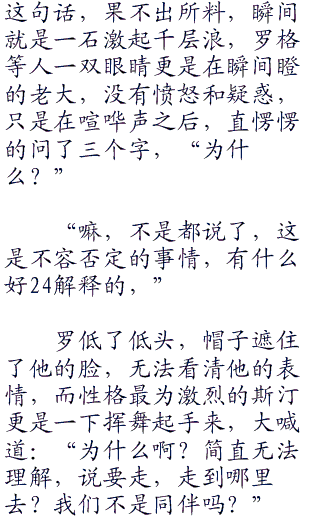 这句话，果不出所料，瞬间
就是一石激起千层浪，罗格
等人一双眼睛更是在瞬间瞪
的老大，没有愤怒和疑惑，
只是在喧哗声之后，直愣愣
的问了三个字，“为什
么？”
“嘛，不是都说了，这
是不容否定的事情，有什么
好24解释的，”
罗低了低头，帽子遮住
了他的脸，无法看清他的表
情，而性格最为激烈的斯汀
更是一下挥舞起手来，大喊
道：“为什么啊？简直无法
理解，说要走，走到哪里
去？我们不是同伴吗？”